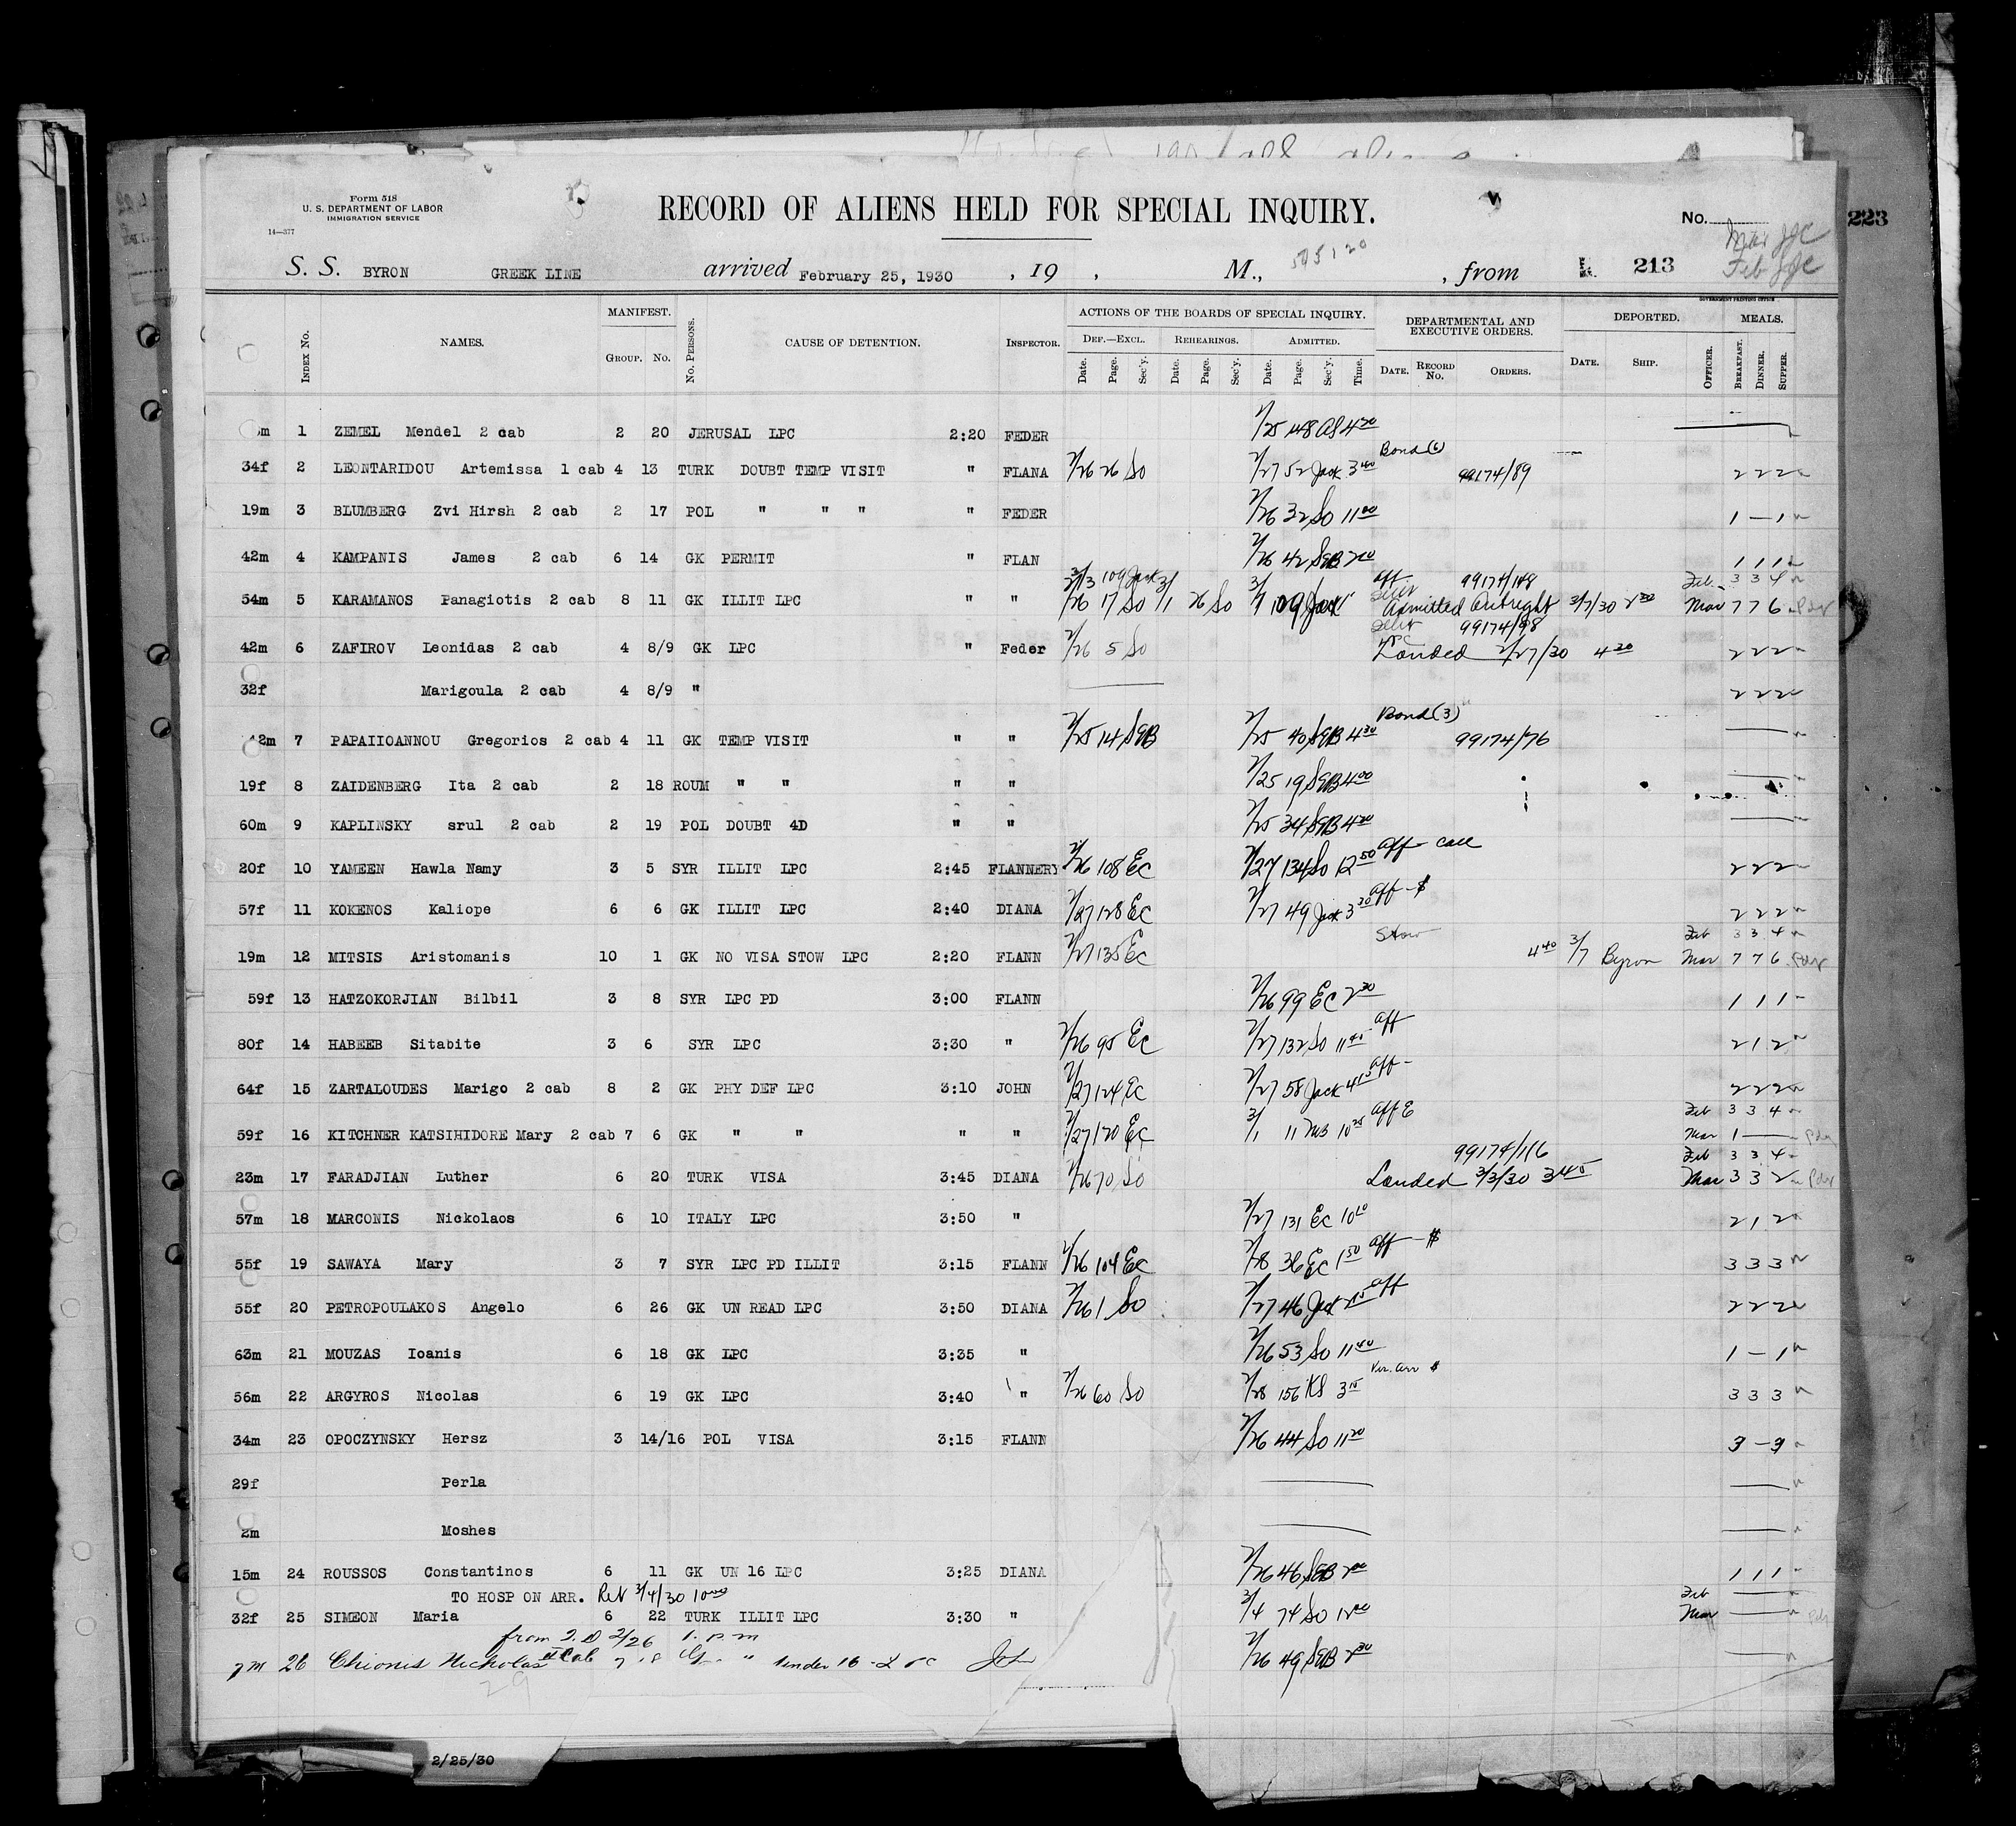 Form 518
U. S. DEPARTMENT OF LABOR
IMMIGRATION SERVICE
14—377
RECORD OF ALIENS HELD FOR SPECIAL INQUIRY.
No. 223
Mar JJC
Feb JJC
S. S. BYRON GREEK LINE arrived February 25, 1930, 19 , M., , from 213
GOVERNMENT PRINTING OFFICE
INDEX No. NAMES. MANIFEST. GROUP. No. No. PERSONS. CAUSE OF DETENTION. INSPECTOR. ACTIONS OF THE BOARDS OF SPECIAL INQUIRY. DEF.—EXCL. Date. Page. Sec'y. REHEARINGS. Date. Page. Sec'y. ADMITTED. Date. Page. Sec'y. Time. DEPARTMENTAL AND EXECUTIVE ORDERS. DATE. RECORD No. ORDERS. DEPORTED. DATE. SHIP. OFFICER. MEALS. BREAKFAST. DINNER. SUPPER.
m 1 ZEMEL Mendel 2 cab 2 20 JERUSAL LPC 2:20 FEDER 2/25 48 AS 4 20
34f 2 LEONTARIDOU Artemissa 1 cab 4 13 TURK DOUBT TEMP VISIT " FLANA 2/26 26 So 2/27 52 Jack 3 40 Bond 99174/89 2 2 2
19m 3 BLUMBERG Zvi Hirsh 2 cab 2 17 POL " " " " FEDER 2/26 32 So 11 00 1 — 1
42m 4 KAMPANIS James 2 cab 6 14 GK PERMIT " FLAN 2/26 42 SGB 2 00 1 1 1
3/3 109 Jack 3/1 aff- 99174/148 Feb 3 3 4
54m 5 KARAMANOS Panagiotis 2 cab 8 11 GK ILLIT LPC " " 2/26 17 So 26 So 3/7 109 Jack Admitted Outright 3/7/30 2 30 Mar 7 7 6
99174/98
42m 6 ZAFIROV Leonidas 2 cab 4 8/9 GK LPC " Feder 2/26 5 So LPC Landed 2/27/30 4 30 2 2 2
32f Marigoula 2 cab 4 8/9 " 2 2 2
42m 7 PAPAIIOANNOU Gregorios 2 cab 4 11 GK TEMP VISIT " " 2/25 14 SGB 2/25 40 SGB 4 30 Bond (3) 99174/76
19f 8 ZAIDENBERG Ita 2 cab 2 18 ROUM " " " " 2/25 19 SGB 4 00
60m 9 KAPLINSKY srul 2 cab 2 19 POL DOUBT 4D " " 2/25 34 SGB 4 20
20f 10 YAMEEN Hawla Namy 3 5 SYR ILLIT LPC 2:45 FLANNERY 2/26 108 EC 2/27 134 So 12 50 aff - case 2 2 2
57f 11 KOKENOS Kaliope 6 6 GK ILLIT LPC 2:40 DIANA 2/27 128 EC 2/27 49 Jack 3 30 aff - $ 2 2 2
Stow Feb 3 3 4
19m 12 MITSIS Aristomanis 10 1 GK NO VISA STOW LPC 2:20 FLANN 2/27 135 EC 4 40 3/7 Byron Mar 7 7 6
59f 13 HATZOKORJIAN Bilbil 3 8 SYR LPC PD 3:00 FLANN 2/26 99 EC 2 30 1 1 1
80f 14 HABEEB Sitabite 3 6 SYR LPC 3:30 " 2/26 95 EC 2/27 132 So 11 45 aff 2 1 2
64f 15 ZARTALOUDES Marigo 2 cab 8 2 GK PHY DEF LPC 3:10 JOHN 2/27 124 EC 2/27 58 Jack 4 15 aff - 2 2 2
Feb 3 3 4
59f 16 KITCHNER KATSIHIDORE Mary 2 cab 7 6 GK " " " " 2/27 120 EC 3/1 11 10 25 aff Mar 1
99174/116 Feb 3 3 4
23m 17 FARADJIAN Luther 6 20 TURK VISA 3:45 DIANA 2/26 70 So Landed 3/3/30 3 45 Mar 3 3 2
57m 18 MARCONIS Nickolaos 6 10 ITALY LPC 3:50 " 2/27 131 EC 10 10 2 1 2
55f 19 SAWAYA Mary 3 7 SYR LPC PD ILLIT 3:15 FLANN 2/26 104 EC 2/28 36 EC 1 50 aff - $ 3 3 3
55f 20 PETROPOULAKOS Angelo 6 26 GK UN READ LPC 3:50 DIANA 2/26 1 So 2/27 46 Jack aff 2 2 2
63m 21 MOUZAS Ioanis 6 18 GK LPC 3:35 " 2/26 53 So 11 40 1 — 1
56m 22 ARGYROS Nicolas 6 19 GK LPC 3:40 " 2/26 60 So 2/28 156 KS 3 15 Ver. arr $ 3 3 3
34m 23 OPOCZYNSKY Hersz 3 14/16 POL VISA 3:15 FLANN 2/26 44 So 11 20 3 — 3
29f Perla
2m Moshes
15m 24 ROUSSOS Constantinos 6 11 GK UN 16 LPC 3:25 DIANA 2/26 46 SGB 2 00 1 1 1
TO HOSP ON ARR. Ret 3/4/30 10 00 Feb
32f 25 SIMEON Maria 6 22 TURK ILLIT LPC 3:30 " 3/4 74 So 12 00 Mar
from 2/26 1. p.m
7m 26 Chionis Nicholas 7 18 Gr " Under 16 - L P C John 2/26 49 SGB 2 30
29
2/25/30